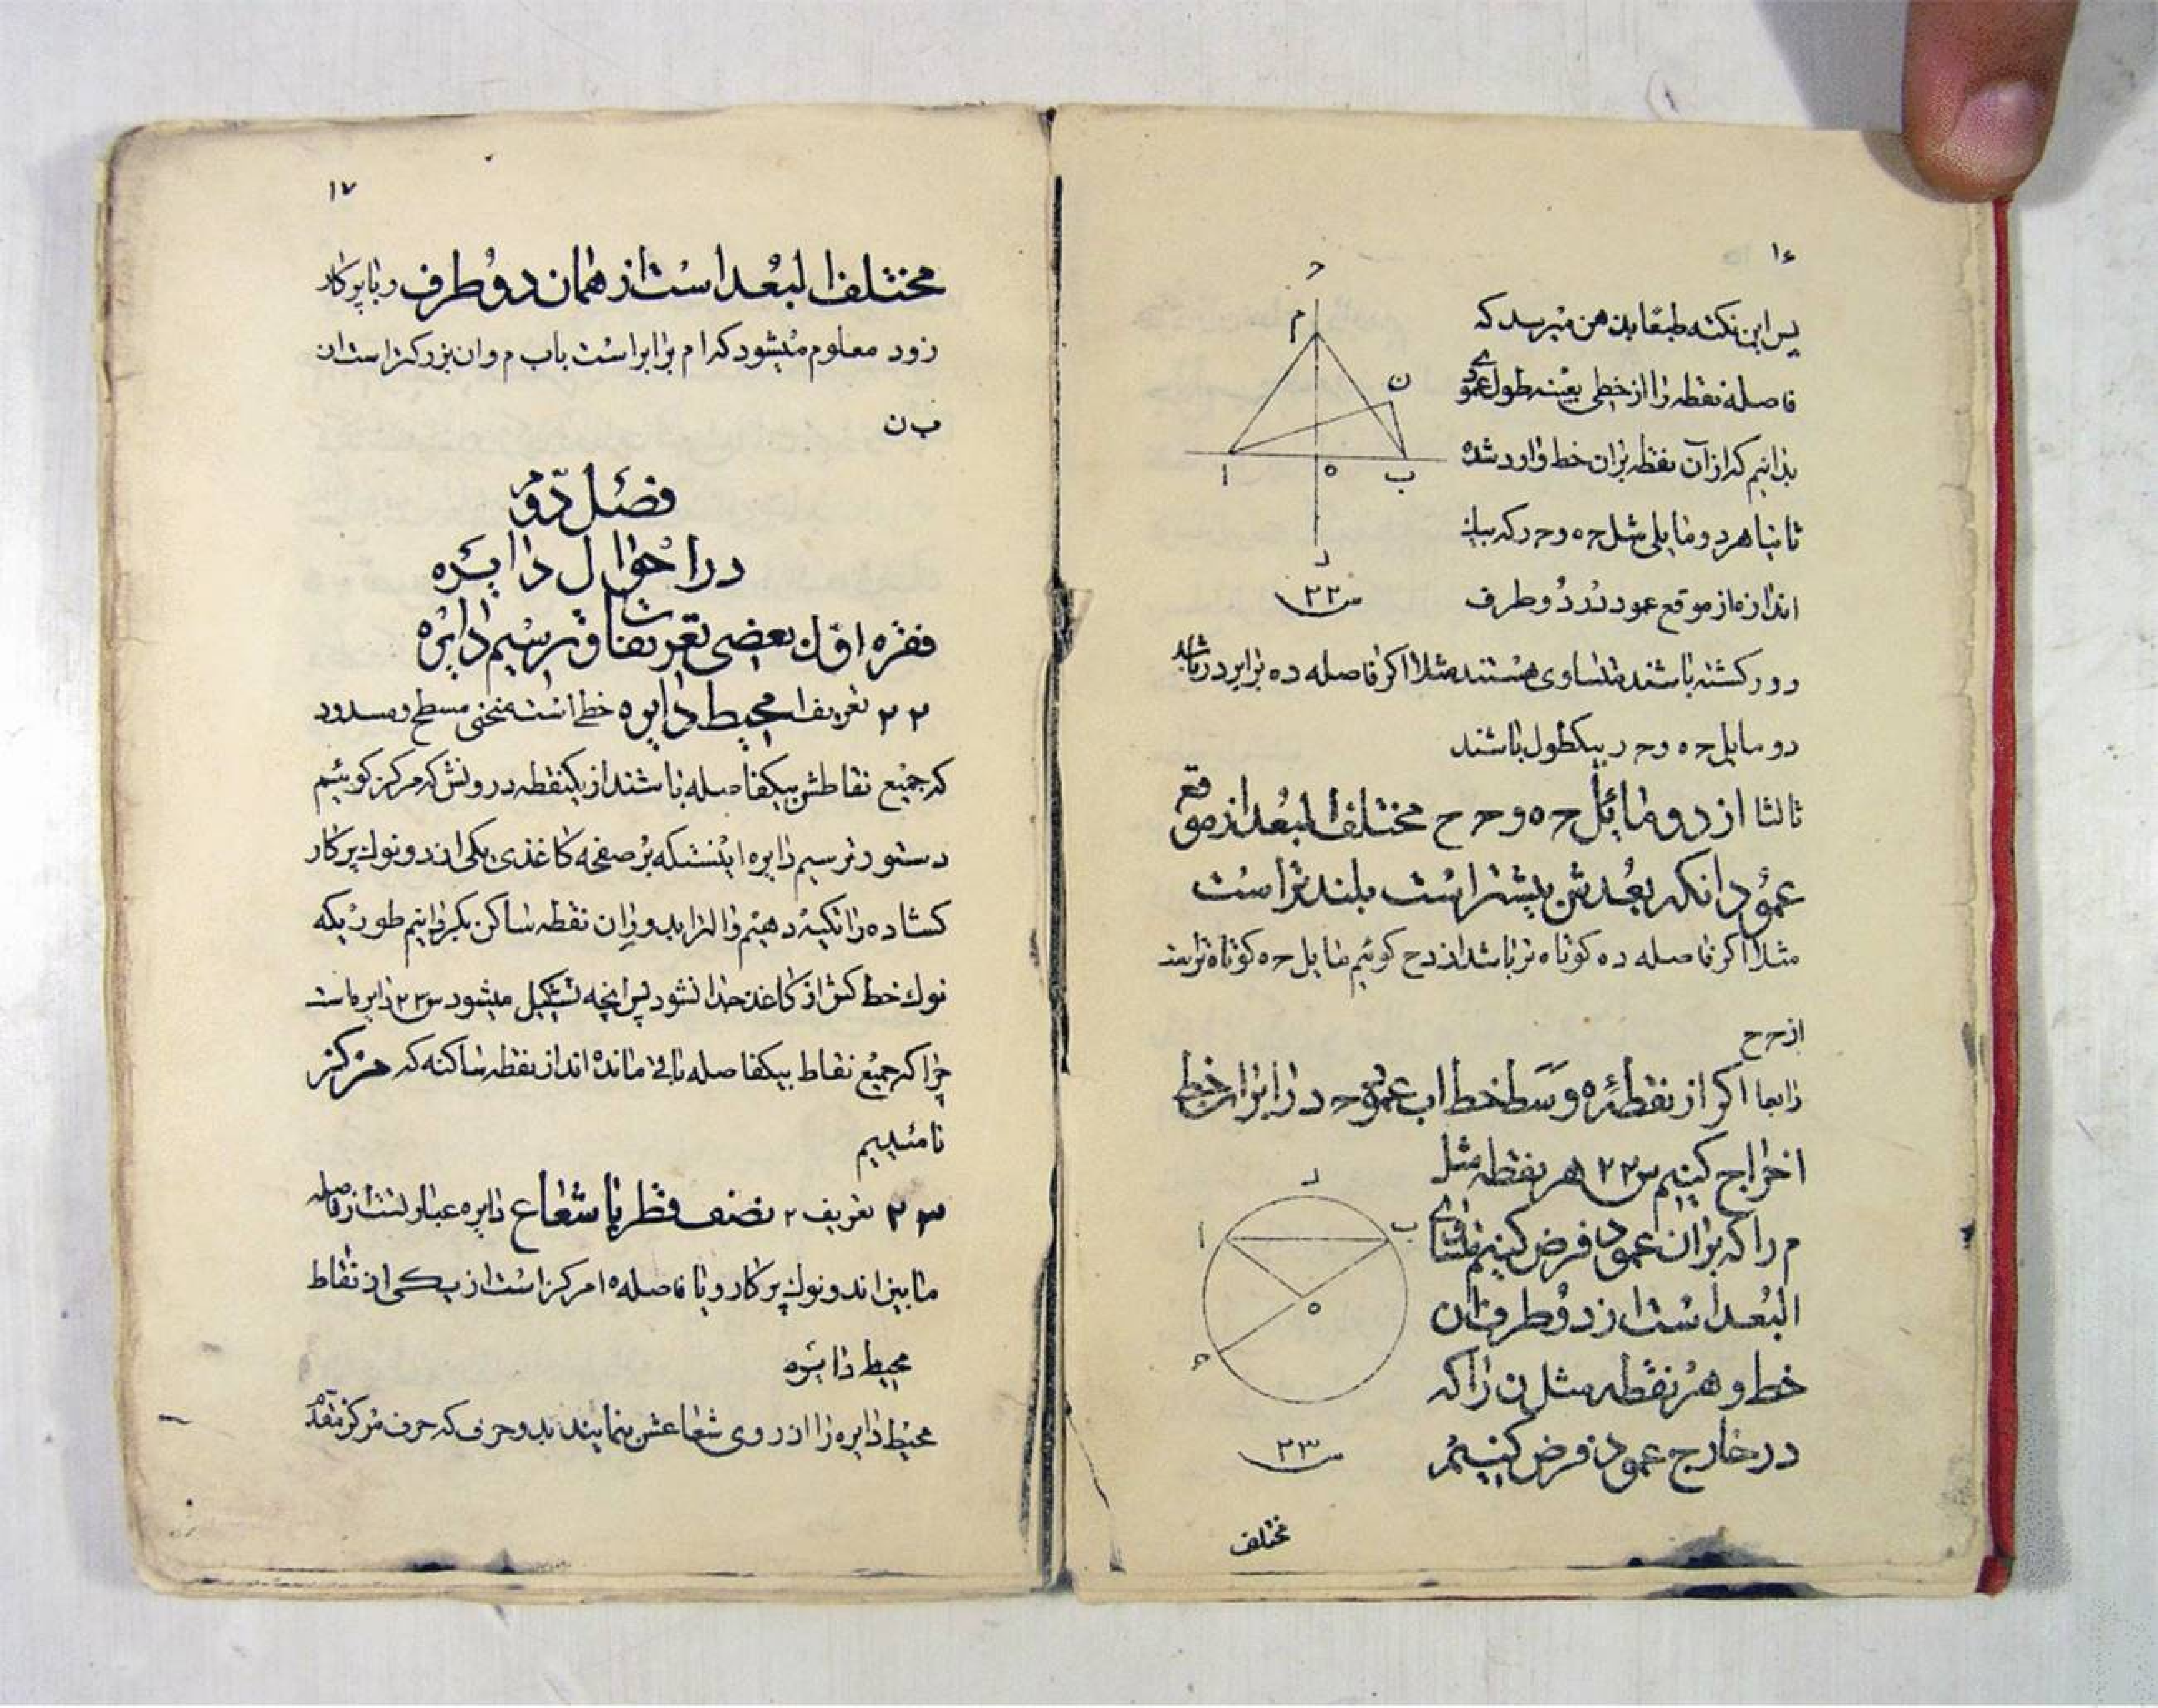 ۱۶
پس این نکته طبعًا بذهن میرسد که
فاصله نقطه را از خطی بعینه طول عمودی
بدانیم که از آن نقطه بران خط وارد شده
ثانیا هر دو مایلی مثل ح ه و ح ر که بیک
اندازه از موقع عمود در دو طرف
دور کشته باشند متساوی هستند مثلا اکر فاصله د ه برابر د ر باشد
دو مایل ح ه و ح ر بیکطول باشند
ثالثا از دو مائل ح ه و ح ح مختلف البُعد از موقع
عمود انکه بُعدش بیشتر است بلندتر است
مثلا اکر فاصله د ه کوتاه تر باشد از د ح کوئیم مایل ح ه کوتاه تر
از ح ح
رابعا اکر از نقطه ه وسط خط ا ب عمود ح د را بر این خط
اخراج کنیم س ۲۲ هر نقطه مثل
م را که بران عمود فرض کنیم متساوی
البُعد است از دو طرف ان
خط و هر نقطه مثل ن را که
در خارج عمود فرض کنیم
مختلف
ح
م
ن
ا
ه
ب
د
س ۲۲
د
ا
ب
ه
م
س ۲۳
۱۷
مختلف البُعد است از همان دو طرف و با پرکار
زود معلوم میشود که ا م برابر است با ب م و ا ن بزرکتر است از
ب ن
فصل دوم
در احوال دایره
فقره اول بعضی تعریفات و ترسیم دایره
۲۲ تعریف ۱ محیط دایره خطی است منحنی مسطح و مسدود
که جمیع نقاطش بیکفاصله باشند از یکنقطه درونش که مرکز کوئیم
دستور ترسیم دایره اینستکه بر صفحه کاغذی یکی از دو نوک پرکار
کشاده را تکیه دهیم و الترا بدور ان نقطه ساکن بکردانیم طوریکه
نوک خط کش از کاغذ جدا نشود پس انچه تشکیل میشود س ۲۳ دایره است
چرا که جمیع نقاط بیکفاصله باقی مانده اند از نقطه ساکنه که مرکز
نامیدیم
۲۳ تعریف ۲ نصف قطر یا شعاع دایره عبارتست از فاصله
مابین اندو نوک پرکار و یا فاصله ه ا مرکز است از یکی از نقاط
محیط دایره
محیط دایره را از روی شعاعش بنمایند بدو حرف که حرف مرکز مقدم